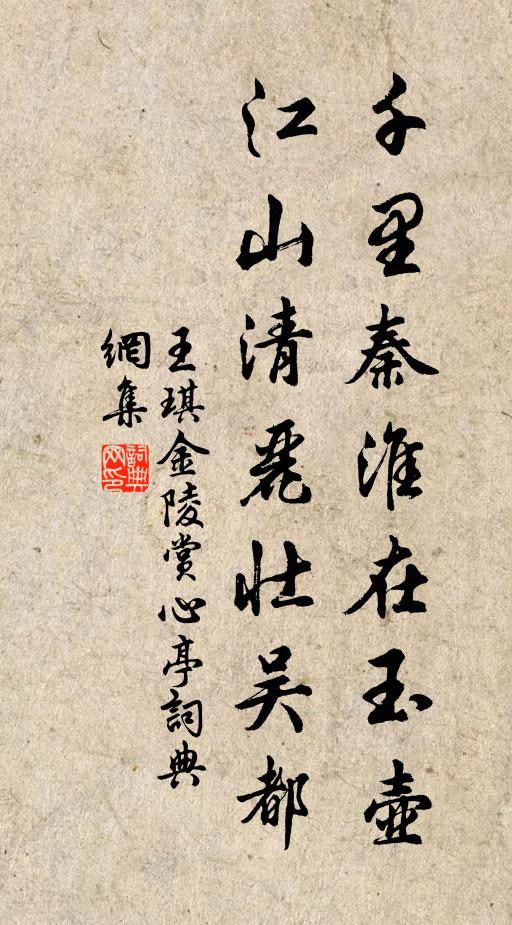 千里秦淮在玉壺
江山清麗壯吳都
王琪金陵賞心亭詞典
網集
詞典網印